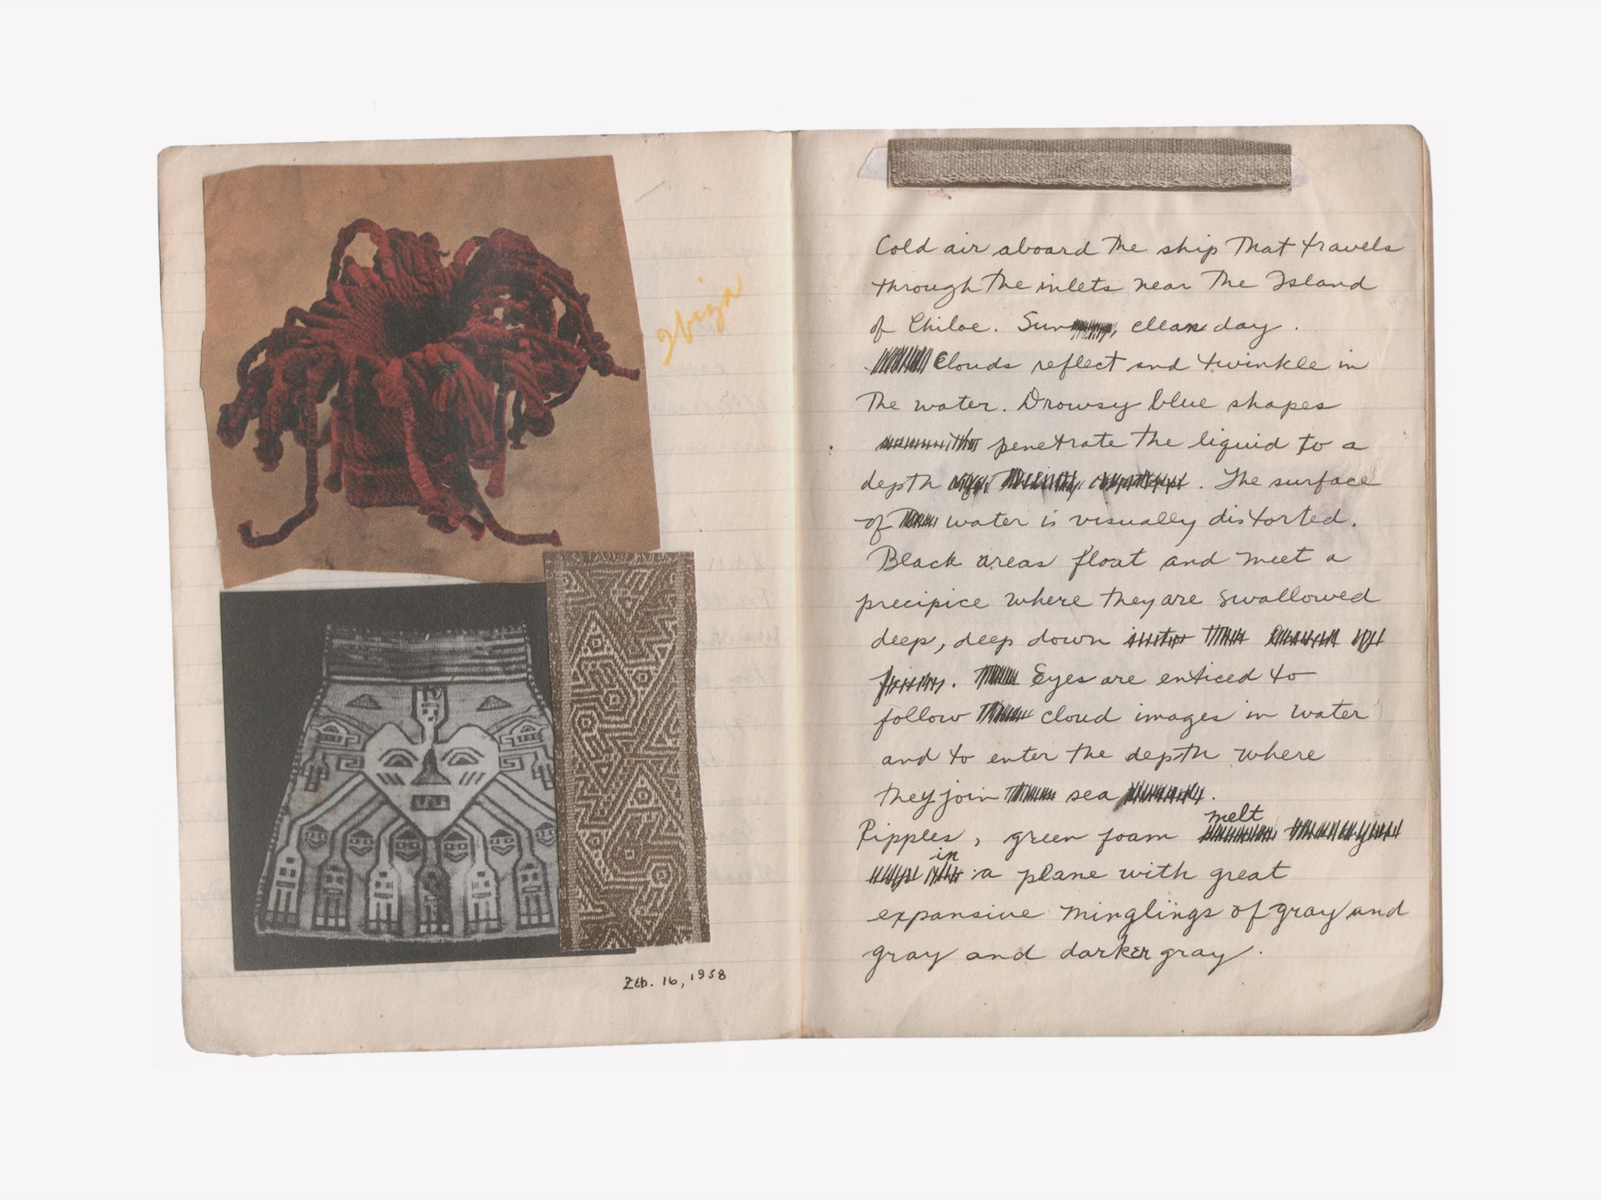 Ibiza
Feb. 16, 1958
Cold air aboard the ship that travels
through the inlets near the Island
of Chiloe. Sun, clean day.
Clouds reflect and twinkle in
the water. Drowsy blue shapes
penetrate the liquid to a
depth. The surface
of water is visually distorted.
Black areas float and meet a
precipice where they are swallowed
deep, deep down
. Eyes are enticed to
follow cloud images in water
and to enter the depth where
they join sea.
Ripples, green foam melt
in a plane with great
expansive minglings of gray and
gray and darker gray.